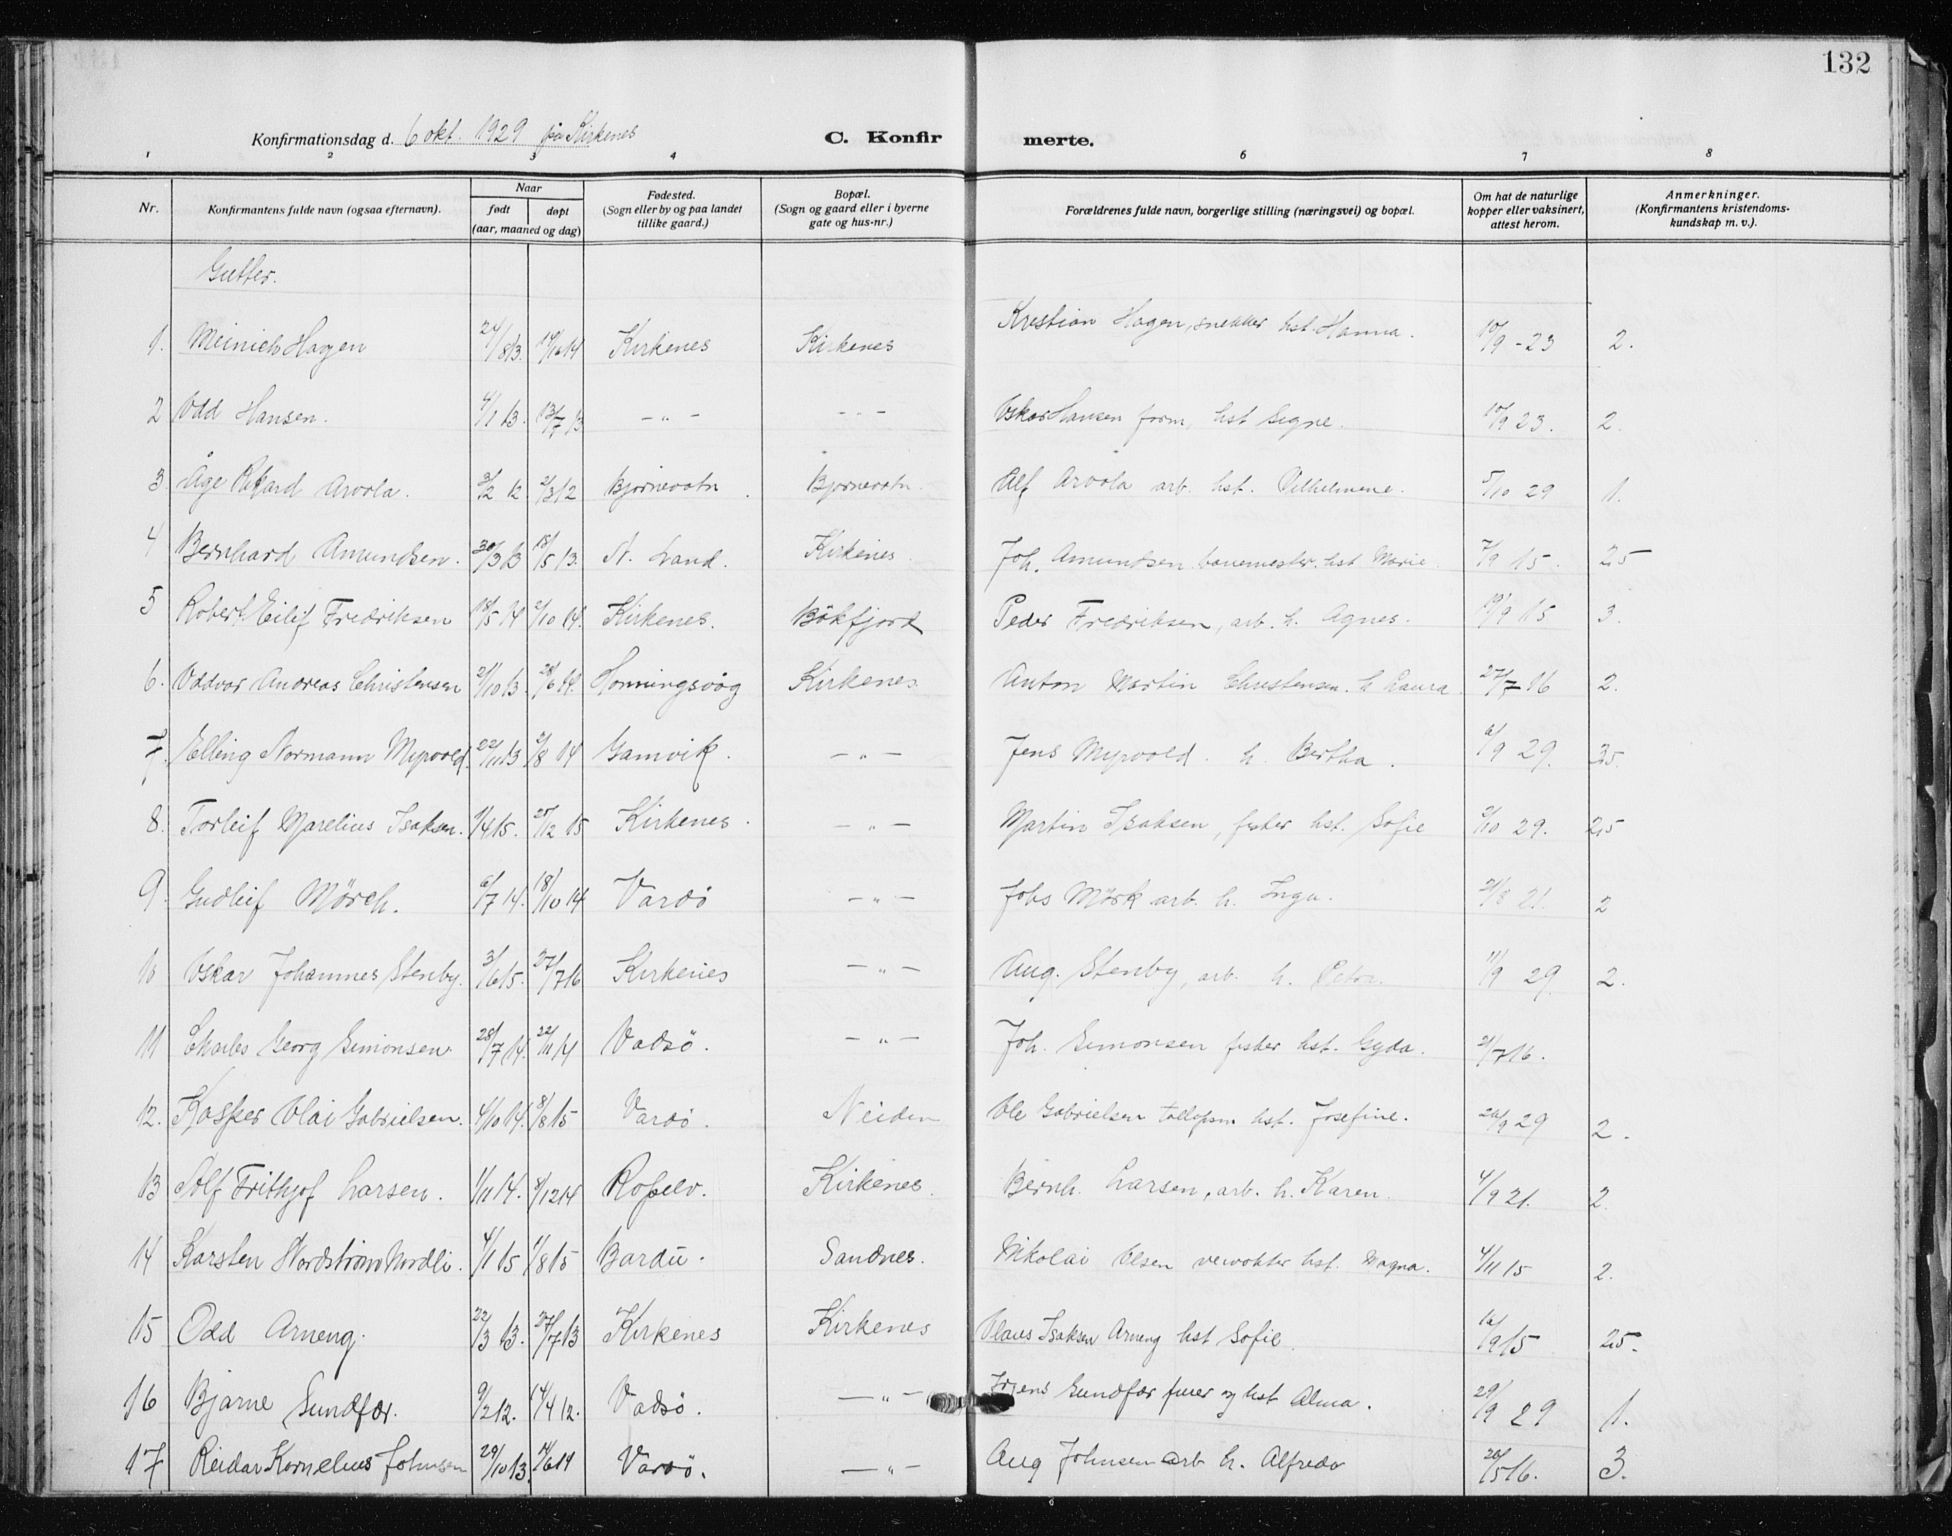 132
Konfirmationsdag d. 6 okt. 1929 på Kirkenes C. Konfir merte.
1 2 3 4 6 7 8
Nr. Konfirmantens fulde navn (ogsaa efternavn). Naar født døpt (aar, maaned og dag) Fødested. (Sogn eller by og paa landet tillike gaard.) Bopæl. (Sogn og gaard eller i byerne gate og hus-nr.) Forældrenes fulde navn, borgerlige stilling (næringsvei) og bopæl. Om hat de naturlige kopper eller vaksinert, attest herom. Anmerkninger. (Konfirmantens kristendoms-kundskap m. v.).
Gutter.
1. Meinich Hagen 24/8 13. Kirkenes Kirkenes Kristian Hagen, snekker hst. Hanna. 10/9 - 23 2.
2 Odd Hansen. 4/1 13. 13/7 13 — " — — " — Oskar Hansen form, hst Signe. 10/9 23. 2.
3. Åge Rikard Arvola. 3/2 12 2/3 12 Bjørnevatn. Bjørnevatn. Alf Arvola arb. hst. Vilhelmine. 5/10 29 1.
4 Bernhard Amundsen. 30/3 13 18/5 13. N. Land. Kirkenes Joh. Amundsen banemester hst Marie. 7/9 15. 2,5
5 Robert Eilif Fredriksen 18/5 14 2/10 14. Kirkenes. Bökfjord Peder Fredriksen, arb. h. Agnes. 19/9 15 3.
6. Oddvar Andreas Christensen 21/10 13. 28/6 14. Honningsvåg Kirkenes Anton Martin Christensen. h Laura 27/7 16 2.
7. Elling Normann Myrvold. 22/11 13 2/8 14 Gamvik. — " — Jens Myrvold. h. Bertha. 6/9 29. 3,5.
8. Torleif Marelius Isaksen. 1/4 15. 25/12 15 Kirkenes. — " — Martin Isaksen, fisker hst. Sofie 2/10 29. 2,5
9. Gudleif Mörch. 6/7 14. 18/10 14 Vardö — " — Johs Mörk arb. h. Inga. 21/8 21. 2
10 Oskar Johannes Stenby. 3/6 15. 27/7 16 Kirkenes — " — Aug. Stenby, arb. h. Petra. 11/9 29 2.
11 Charles Georg Simonsen 28/7 14. 22/11 14 Vadsö. — " — Joh. Simonsen fisker hst. Gyda. 21/7 16.
12. Kasper Olai Gabrielsen. 4/10 14. 8/8 15 Vardö. Neiden Ole Gabrielsen hst. Josefine. 20/9 29 2.
13 Alf Frithjof Larsen. 1/11 14. Kirkenes. Bernh. Larsen, arb. h. Karen. 4/9 21. 2.
14 Karsten Nordstrøm Nordli. 4/1 15 1/8 15 Bardu. Sandnes. Nikolai Olsen hst. Magna. 4/11 15 2.
15 Odd Arneng. 22/3 13. 27/7 13 Kirkenes Kirkenes Olaus Isaksen Arneng hst Sofie. 2,5.
16 Bjarne Sundfær. 9/2 12. 14/4 12. Vadsö. — " — Jens Sundfær og hst Alma. 29/9 29 1.
17 Reidar Kornelius Johnsen 29/10 13 Vardö. — " — Aug Johnsen arb h. Alfreda 20/5 16. 3.